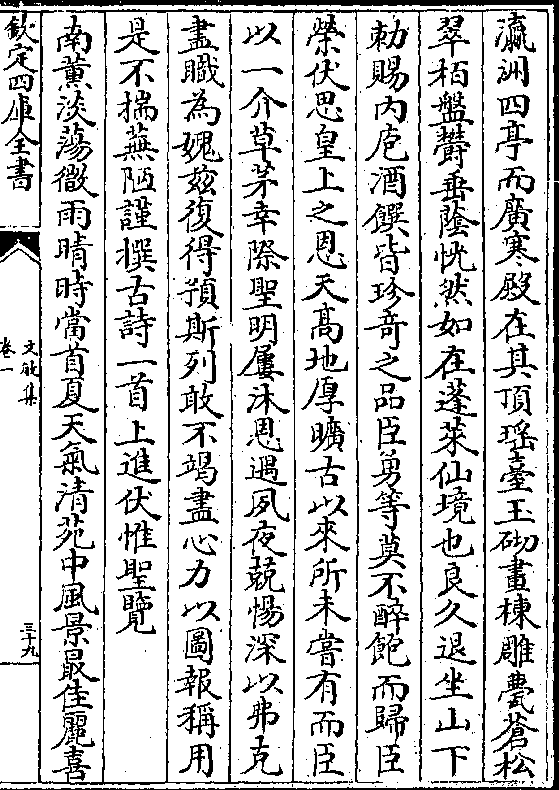 瀛洲四亭而廣寒殿在其頂瑶臺玉砌畫棟雕甍蒼松
翠栢盤欝垂蔭恍然如在蓬萊仙境也良久退坐山下
勅賜内庖酒饌皆珍竒之品臣勇等莫不醉飽而歸臣
榮伏思皇上之恩天髙地厚曠古以來所未嘗有而臣
以一介草茅幸際聖明屢沐恩遇夙夜兢惕深以弗克
盡職為媿兹復得預斯列敢不竭盡心力以圖報稱用
是不揣蕪陋謹撰古詩一首上進伏惟聖覽
南薫淡蕩微雨晴時當首夏天氣清苑中風景最佳麗喜
欽定四庫全書
文敏集
卷一
三十九